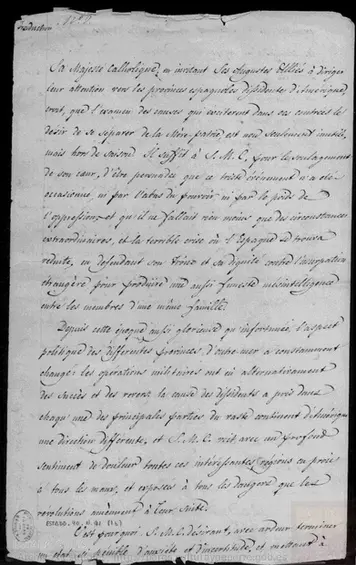 Traduction
N.º 2.
Sa Majesté Catholique, en invitant Ses Augustes Alliés à diriger
leur attention vers les provinces espagnoles dissidentes d'Amérique,
croit, que l'examen des causes qui excitèrent dans ces contrées le
désir de se séparer de la Mère-patrie, est non seulement inutile,
mais hors de saison. Il suffit à S. M. C. pour le soulagement
de son cœur, d'être persuadée que ce triste évènement n'a été
occasionné ni par l'abus du pouvoir, ni par le poids de
l'oppression, et qu'il ne fallait rien moins que des circonstances
extraordinaires, et la terrible crise où l'Espagne se trouva
réduite, en défendant son trône et sa dignité contre l'usurpation
étrangère pour produire une aussi funeste mésintelligence
entre les membres d'une même famille.
Depuis cette époque aussi glorieuse qu'infortunée, l'aspect
politique des différentes provinces d'outre-mer a constamment
changé: les opérations militaires ont eu alternativement
des succès et des revers; la cause des dissidents a pris dans
chaqu'une des principales parties du vaste continent d'Amérique
une direction différente, et S. M. C. voit avec un profond
sentiment de douleur toutes ces intéressantes régions en proie
à tous les maux, et exposées à tous les dangers que les
révolutions amènent à leur suite.
C'est pourquoi S. M. C. désirant, avec ardeur terminer
un état si pénible d'anxiété et d'incertitude, et mettant à
ESTADO, 90, N. 91 (16)